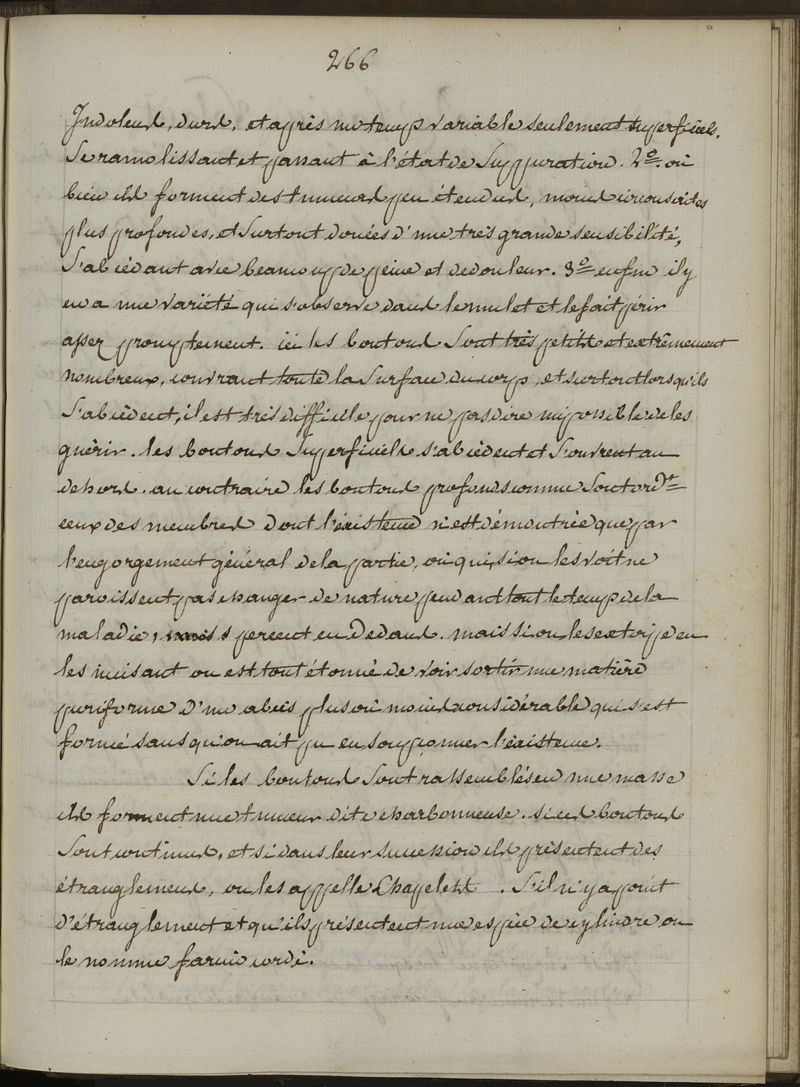 266
Indolens, durs, et après un temps variable seulement superficiels,
Se ramolissant et passant à l'état de Suppuration. 2º. ou
bien ils forment des tumeurs peu étendus, moins circonscrites
plus profondes, et Surtout douées d'une très grande sensibilité,
S'abcèdant avec beaucoup de peine et de douleur. 3º enfin il y
en a une variété qui s'observe dans le mulet et le fait périr
assez promptement. ici les boutons Sont très petits et extrêmement
nombreux, couvrant toute la Surface du corps, et surtout lorsqu'ils
S'abcèdent, il est très difficile pour ne pas dire impossible de les
guérir. les boutons Superficiels s'abcèdent et S'ouvrent au
dehors. au contraire les boutons profonds comme Sont ord.t
ceux des membres dont l'éxistence n'est démontrée que par
l'engorgement général de la partie, ou qui si on les voit ne
paroissent pas changer de nature pendant tout le temps de la
maladie, percent en Dedans. mais si on les extirpe en
les incisant on est tout étonné de voir sortir une matière
puriforme d'un abcès plus ou moins considérable qui s'est
formé sans qu'on ait pu en soupçonner l'éxistence.
Si les boutons Sont rassemblés en une masse
ils forment une tumeur dite charbonneuse. si ces boutons
Sont continus, et si dans leur succession ils présentent des
étranglemens, on les appelle Chapelets. S'il n'y a point
d'étranglement et qu'ils présentent une espèce de cylindre on
le nomme farcin cordé.